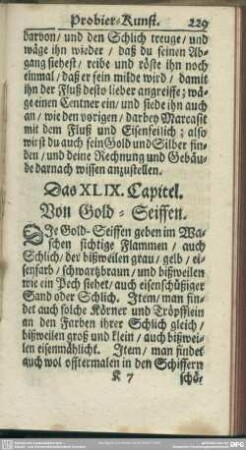 Probier-Kunst. 229
darvon/ und den Schlich treuge/ und
wäge ihn wieder/ daß du seinen Ab-
gang siehest/ reibe und röste ihn noch
einmal/ daß er fein milde wird/ damit
ihn der Fluß desto lieber angreiffe; wä-
ge einen Centner ein/ und siede ihn auch
an/ wie den vorigen/ darbey Marcasit
mit dem Fluß und Eisenfeilich; also
wirst du auch sein Gold und Silber fin-
den/ und deine Rechnung und Gebäu-
de darnach wissen anzustellen.
Das XLIX. Capitel.
Von Gold-Seiffen.
DJe Gold-Seiffen geben im Wa-
schen sichtige Flammen/ auch
Schlich/ der bißweilen grau/ gelb/ ei-
senfarb/ schwartzbraun/ und bißweilen
wie ein Pech siehet/ auch eisenschüßiger
Sand oder Schlich. Item/ man fin-
det auch solche Körner und Tröpfflein
an den Farben ihrer Schlich gleich/
bißweilen groß und klein/ auch bißwei-
len eisenmählicht. Item/ man findet
auch wol offtermalen in den Schiffern
K 7 schö-